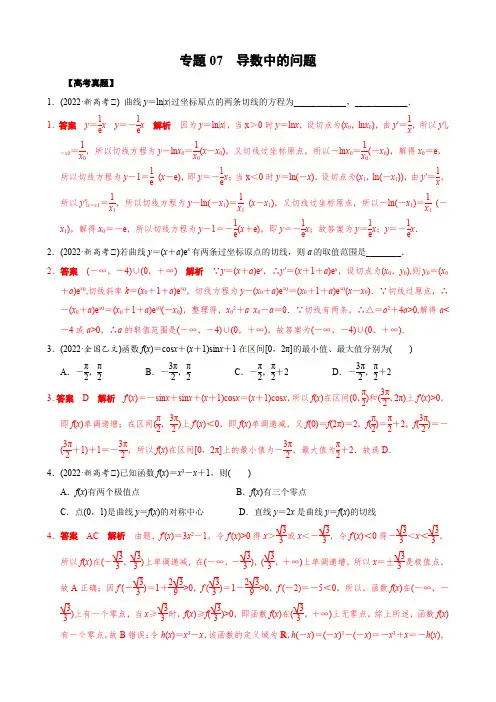 专题 07 导数中的问题
【高考真题】
1．(2022·新高考Ⅱ) 曲线 y＝ln|x|过坐标原点的两条切线的方程为____________，____________．
1．答案 y＝1/e x y＝－1/e x 解析 因为 y＝ln|x|，当 x＞0 时 y＝lnx，设切点为(x₀，lnx₀)，由 y′＝1/x，所以 y′|ₓ
₌ₓ₀＝1/x₀，所以切线方程为 y－lnx₀＝1/x₀(x－x₀)，又切线过坐标原点，所以－lnx₀＝1/x₀(－x₀)，解得 x₀＝e，
所以切线方程为 y－1＝1/e (x－e)，即 y＝－1/e x；当 x＜0 时 y＝ln(－x)，设切点为(x₁，ln(－x₁))，由 y′＝1/x，
所以 y′|ₓ₌ₓ₁＝1/x₁，所以切线方程为 y－ln(－x₁)＝1/x₁ (x－x₁)，又切线过坐标原点，所以－ln(－x₁)＝1/x₁ (－
x₁)，解得 x₀＝－e，所以切线方程为 y－1＝－1/e(x＋e)，即 y＝－1/e x；故答案为 y＝1/e x；y＝－1/e x．
2．(2022·新高考Ⅰ)若曲线 y＝(x＋a)eˣ 有两条过坐标原点的切线，则 a 的取值范围是________．
2．答案 (－∞，－4)∪(0，＋∞) 解析 ∵y＝(x＋a)eˣ，∴y′＝(x＋1＋a)eˣ，设切点为(x₀，y₀)，则 y₀＝(x₀
＋a)eˣ⁰，切线斜率 k＝(x₀＋1＋a)eˣ⁰，切线方程为 y－(x₀＋a)eˣ⁰＝(x₀＋1＋a)eˣ⁰(x－x₀)．∵切线过原点，∴
－(x₀＋a)eˣ⁰＝(x₀＋1＋a)eˣ⁰(－x₀)，整理得，x₀²＋a x₀－a＝0．∵切线有两条，∴△＝a²＋4a>0,解得 a<
－4 或 a>0，∴a 的取值范围是(－∞，－4)∪(0，＋∞)，故答案为(－∞，－4)∪(0，＋∞)．
3．(2022·全国乙文)函数 f(x)＝cosx＋(x＋1)sinx＋1 在区间[0，2π]的最小值、最大值分别为( )
A．－π/2，π/2 B．－3π/2，π/2 C．－π/2，π/2＋2 D．－3π/2，π/2＋2
3．答案 D 解析 f′(x)＝－sinx＋sinx＋(x＋1)cosx＝(x＋1)cosx，所以 f(x)在区间(0，π/2)和(3π/2，2π)上 f′(x)>0，
即 f(x)单调递增；在区间(π/2，3π/2)上 f′(x)＜0，即 f(x)单调递减，又 f(0)＝f(2π)＝2，f(π/2)＝π/2＋2，f(3π/2)＝－
(3π/2＋1)＋1＝－3π/2，所以 f(x)在区间[0，2π]上的最小值为－3π/2，最大值为π/2＋2．故选 D．
4．(2022·新高考Ⅰ)已知函数 f(x)＝x³－x＋1，则( )
A．f(x)有两个极值点 B．f(x)有三个零点
C．点(0，1)是曲线 y＝f(x)的对称中心 D．直线 y＝2x 是曲线 y＝f(x)的切线
4．答案 AC 解析 由题，f′(x)＝3x²－1，令 f′(x)>0 得 x＞√3/3或 x＜－√3/3，令 f′(x)＜0 得－√3/3＜x＜√3/3，
所以 f(x)在(－√3/3，√3/3)上单调递减，在(－∞，－√3/3)，(√3/3，＋∞)上单调递增，所以 x＝±√3/3是极值点，
故 A 正确；因 f (－√3/3)＝1＋2√3/9>0，f (√3/3)＝1－2√3/9>0，f (－2)＝－5＜0，所以，函数 f(x)在(－∞，－
√3/3)上有一个零点，当 x≥√3/3时，f(x)≥f(√3/3)>0，即函数 f(x)在(√3/3，＋∞)上无零点，综上所述，函数 f(x)
有一个零点，故 B 错误；令 h(x)＝x³－x，该函数的定义域为 R，h(－x)＝(－x)³－(－x)＝－x³＋x＝－h(x)，